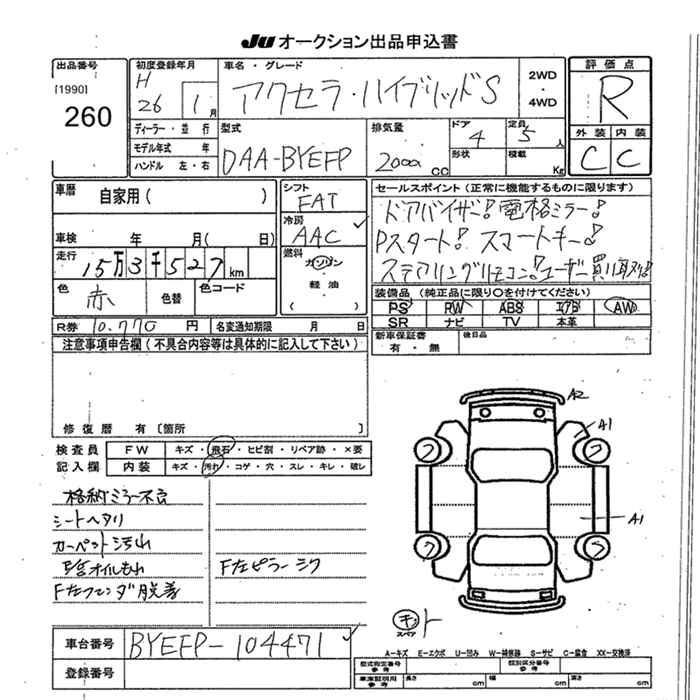 JU オークション出品申込書
出品番号
[1990]
260
初度登録年月
H
26 1月
車名・グレード
アクセラ・ハイブリッドS
2WD
・
4WD
評価点
R
ディーラー・並行
モデル年式 年
ハンドル 左・右
型式
DAA-BYEFP
排気量
2000 cc
ドア
4
定員
5人
形状
積載
Kg
外装 内装
C C
車歴 自家用( )
シフト
FAT
セールスポイント(正常に機能するものに限ります)
ドアバイザー! 電格ミラー!
Pスタート! スマートキー!
ステアリングリモコン! ユーザー買い取り!
車検 年 月( 日)
冷房
AAC
走行
15万3千527km
燃料
ガソリン
・
軽油
( )
色
赤
色替
色コード
装備品(純正品に限り○を付けてください)
PS PW ABS エアB AW
SR ナビ TV 本革
R券 10,770 円 名変通知期限 月 日
新車保証書
有・無
後日品
注意事項申告欄(不具合内容等は具体的に記入して下さい)
修復歴 有〔箇所 〕
検査員 FW キズ・飛石・ヒビ割・リペア跡・×要
記入欄 内装 キズ・汚れ・コゲ・穴・スレ・キレ・破レ
A2
A1
A1
格納ミラー不良
シートヘタリ
カーペット汚れ
オイルもれ F左ピラーシワ
F左フェンダ脱着
キ ト
スペア
車台番号 BYEFP-104471
登録番号
A−キズ E−エクボ U−凹み W−補修跡 S−サビ C−腐食 XX−交換済
型式指定番号
参考
類別区分番号
参考
車庫証明用
参考
長さ cm 幅 cm 高さ cm